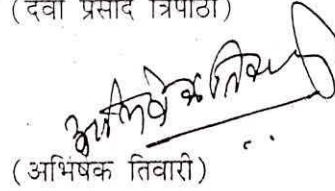 (देवी प्रसाद त्रिपाठी)
अभिषेक तिवारी
(अभिषेक तिवारी)